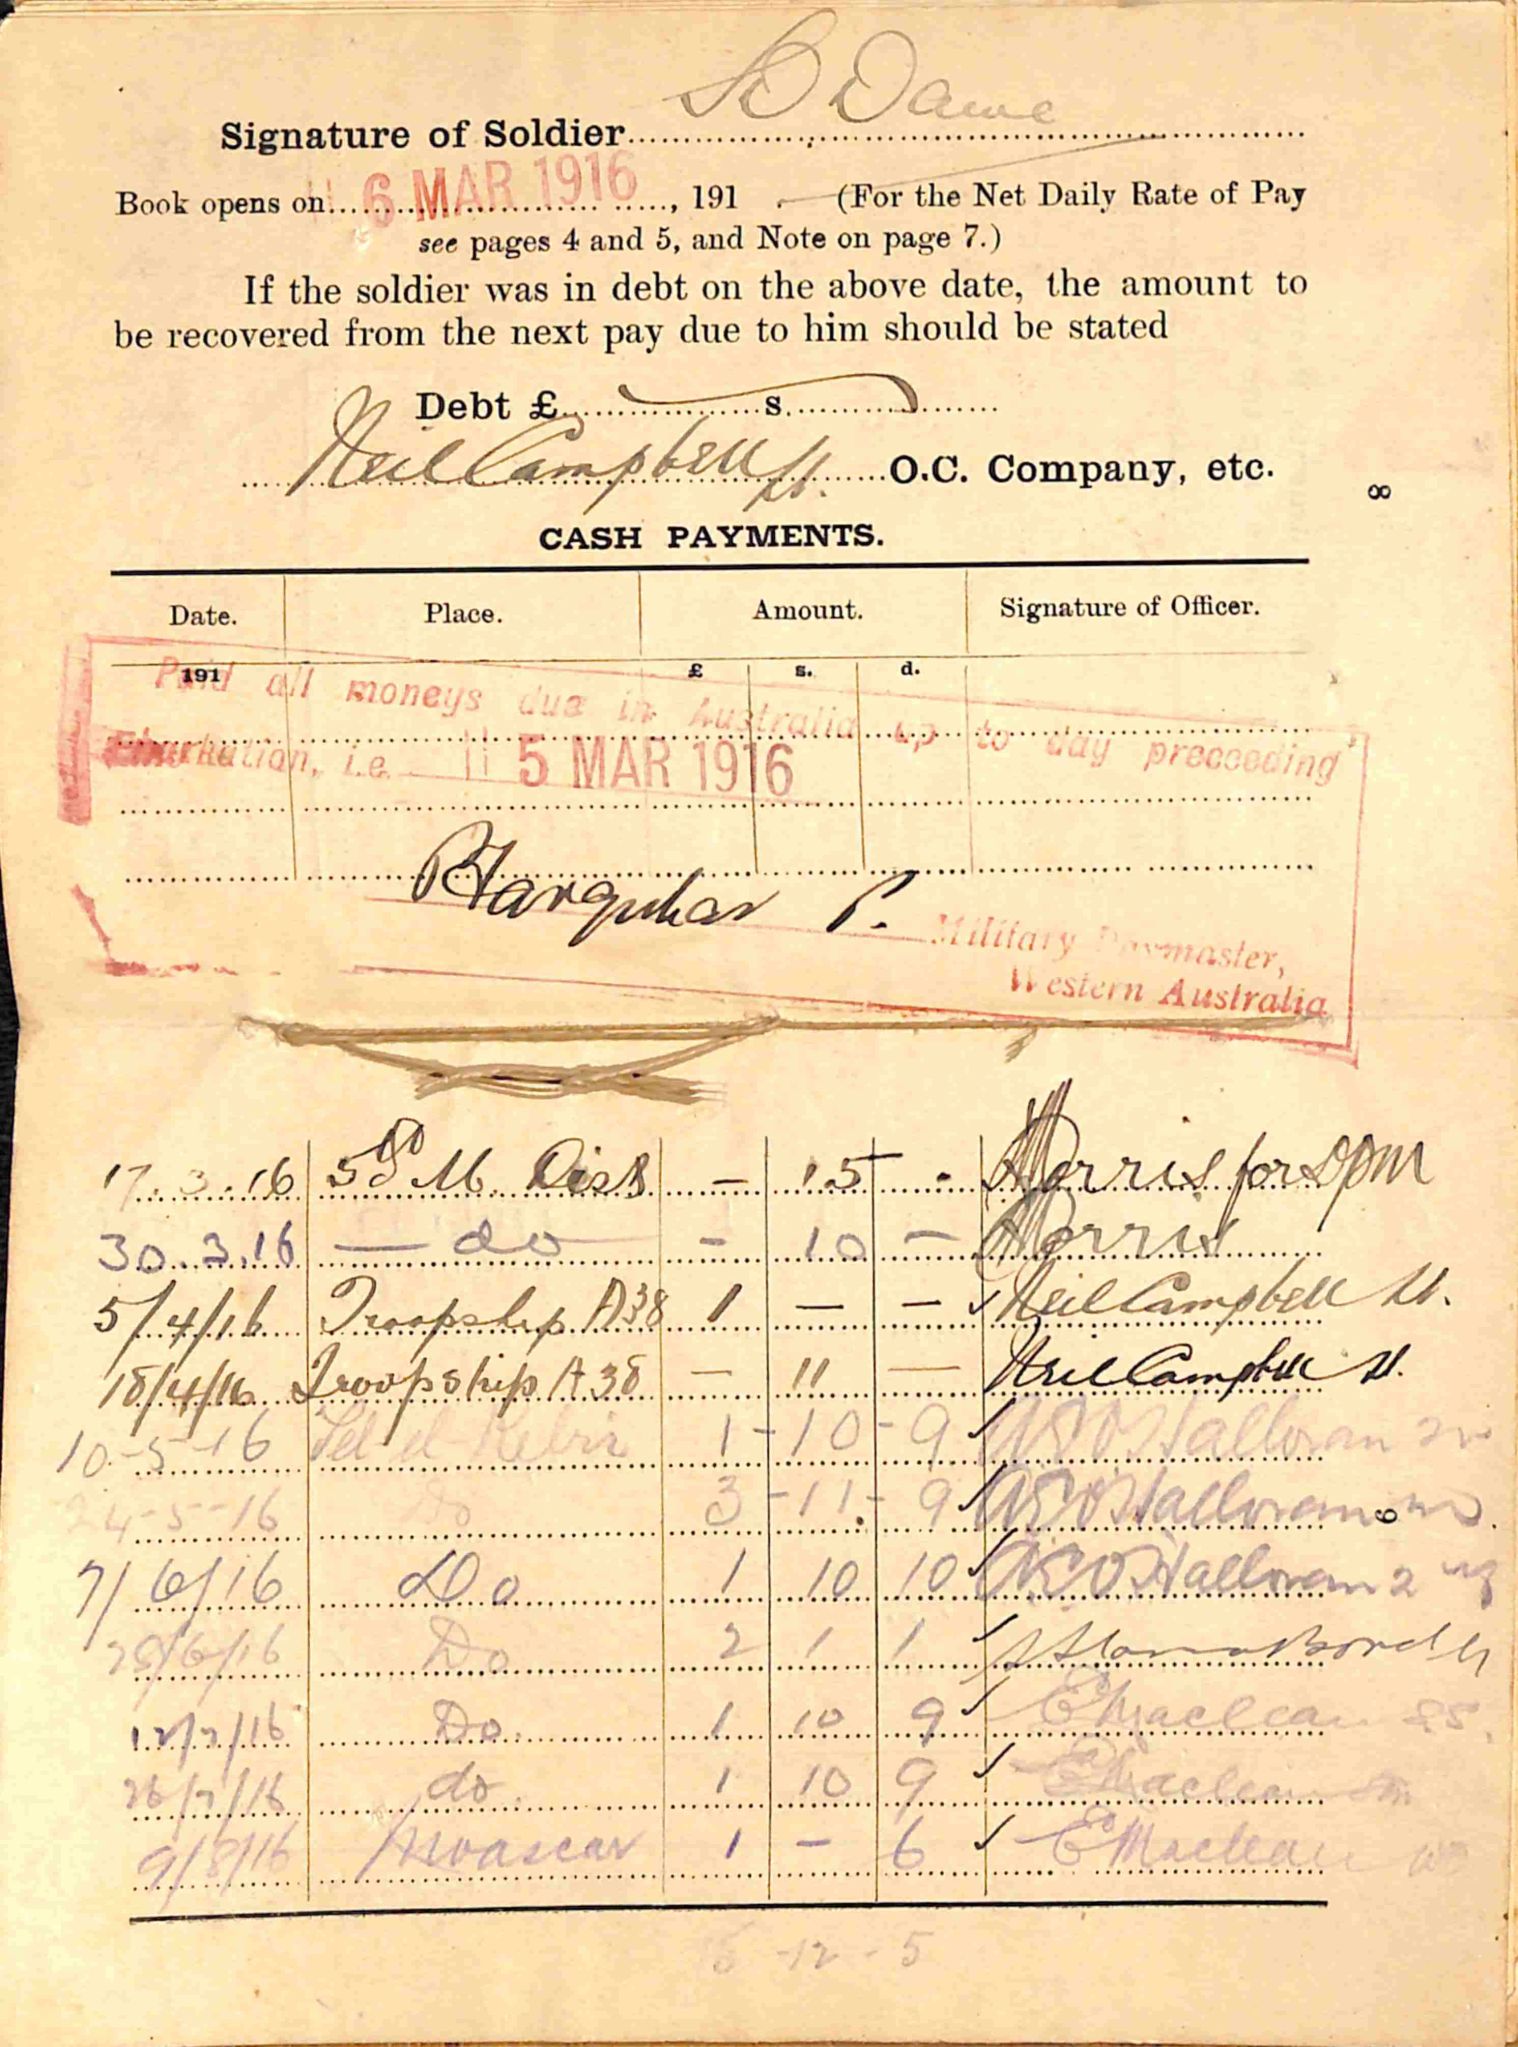 Signature of Soldier Dawe
Book opens on 6 MAR 1916, 191 (For the Net Daily Rate of Pay
see pages 4 and 5, and Note on page 7.)
If the soldier was in debt on the above date, the amount to
be recovered from the next pay due to him should be stated
Debt £ s.
Neil Campbell Lt. O.C. Company, etc.
8
CASH PAYMENTS.
Date. Place. Amount. Signature of Officer.
191 £ s. d.
Paid all moneys due in Australia up to day preceeding
Embarkation, i.e. 5 MAR 1916
Farquhar P.
Military Paymaster,
Western Australia
17.3.16 5th M Dist — 15 - Morris for DPM
30.3.16 — do — - 10 — Morris
5/4/16 Troopship A38 1 — — Neil Campbell Lt.
18/4/16 Troopship A38 — 11 — Neil Campbell Lt.
10-5-16 Tel el-Kebir 1 - 10 - 9 O'Halloran
24-5-16 Do 3 - 11 - 9 O'Halloran
7/6/16 Do 1 10 10 O'Halloran 2
28/6/16 Do 2 1 1
12/7/16 Do. 1 10 9 E Maclean
26/7/16 do. 1 10 9 E Maclean
9/8/16 Moascar 1 - 6 E Maclean
-12-5